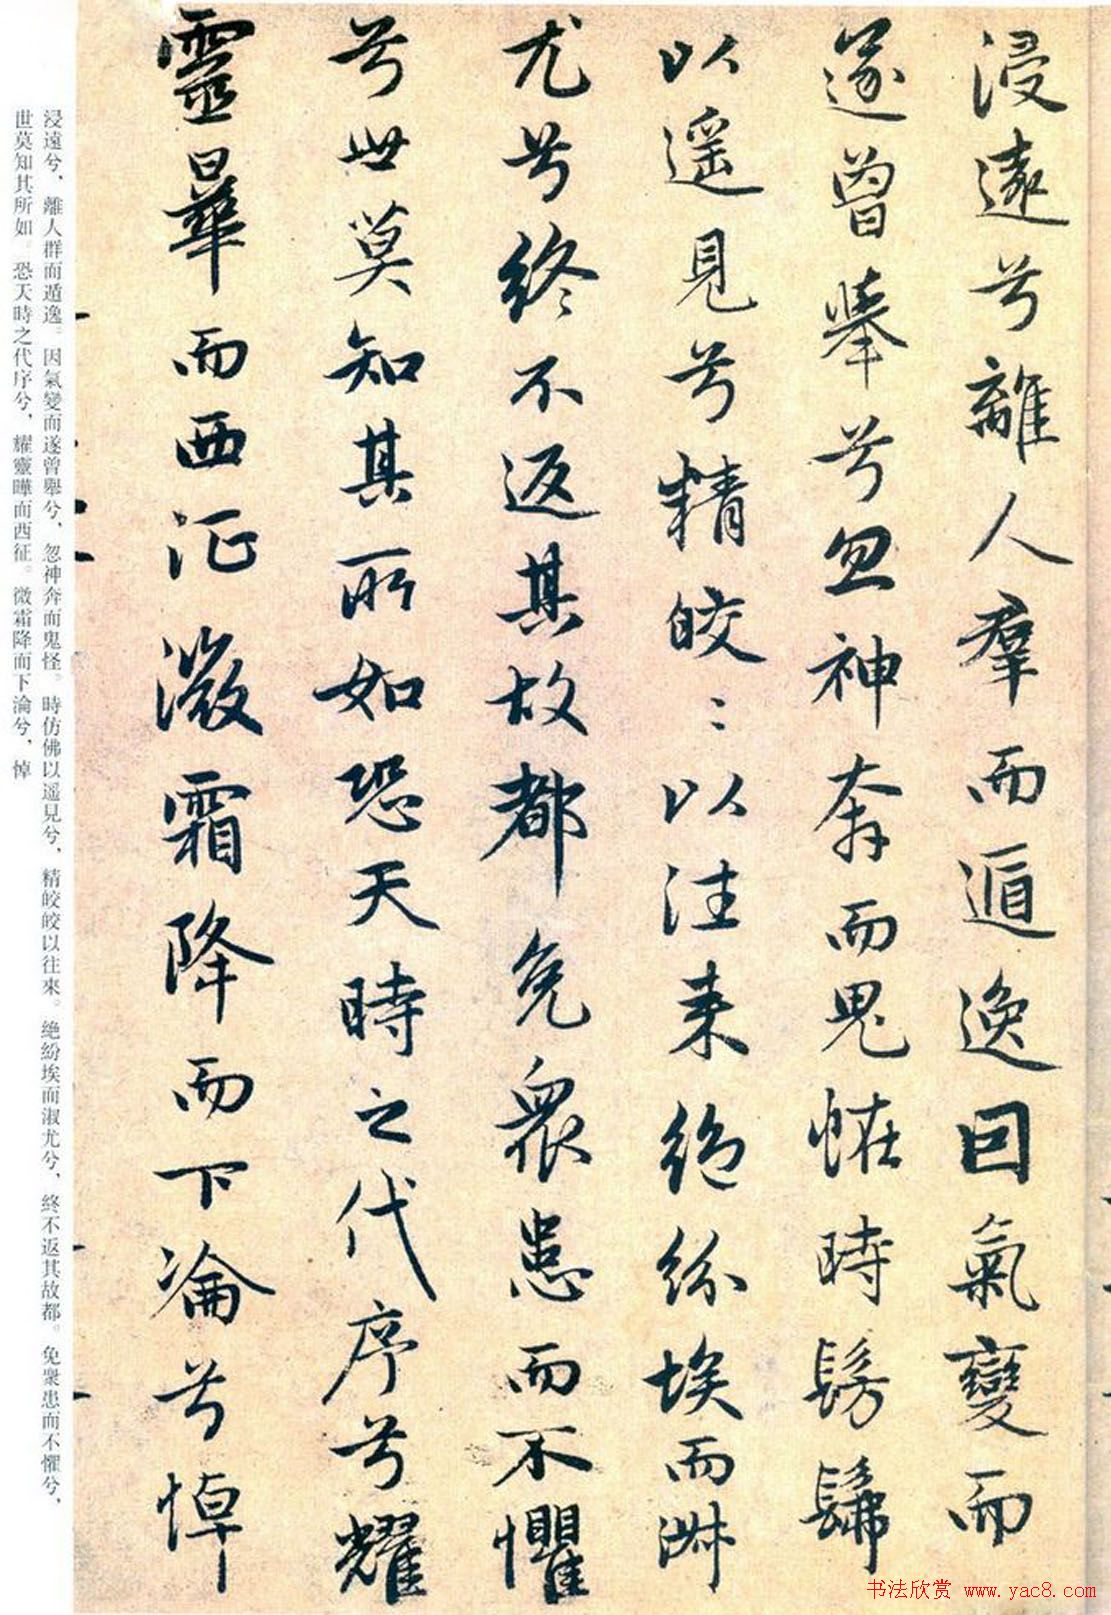 浸遠兮離人羣而遁逸因氣變而
遂曾舉兮忽神奔而鬼恠時髣髴
以遥見兮精皎〻以往來絶紛埃而淑
尤兮終不返其故都免衆患而不懼
兮世莫知其所如恐天時之代序兮耀
靈曄而西征微霜降而下淪兮悼
浸遠兮，離人群而遁逸。因氣變而遂曾舉兮，忽神奔而鬼怪。時仿佛以遥見兮，精皎皎以往來。絶紛埃而淑尤兮，終不返其故都。免衆患而不懼兮，
世莫知其所如。恐天時之代序兮，耀靈曄而西征。微霜降而下淪兮，悼
书法欣赏 www.yac8.com